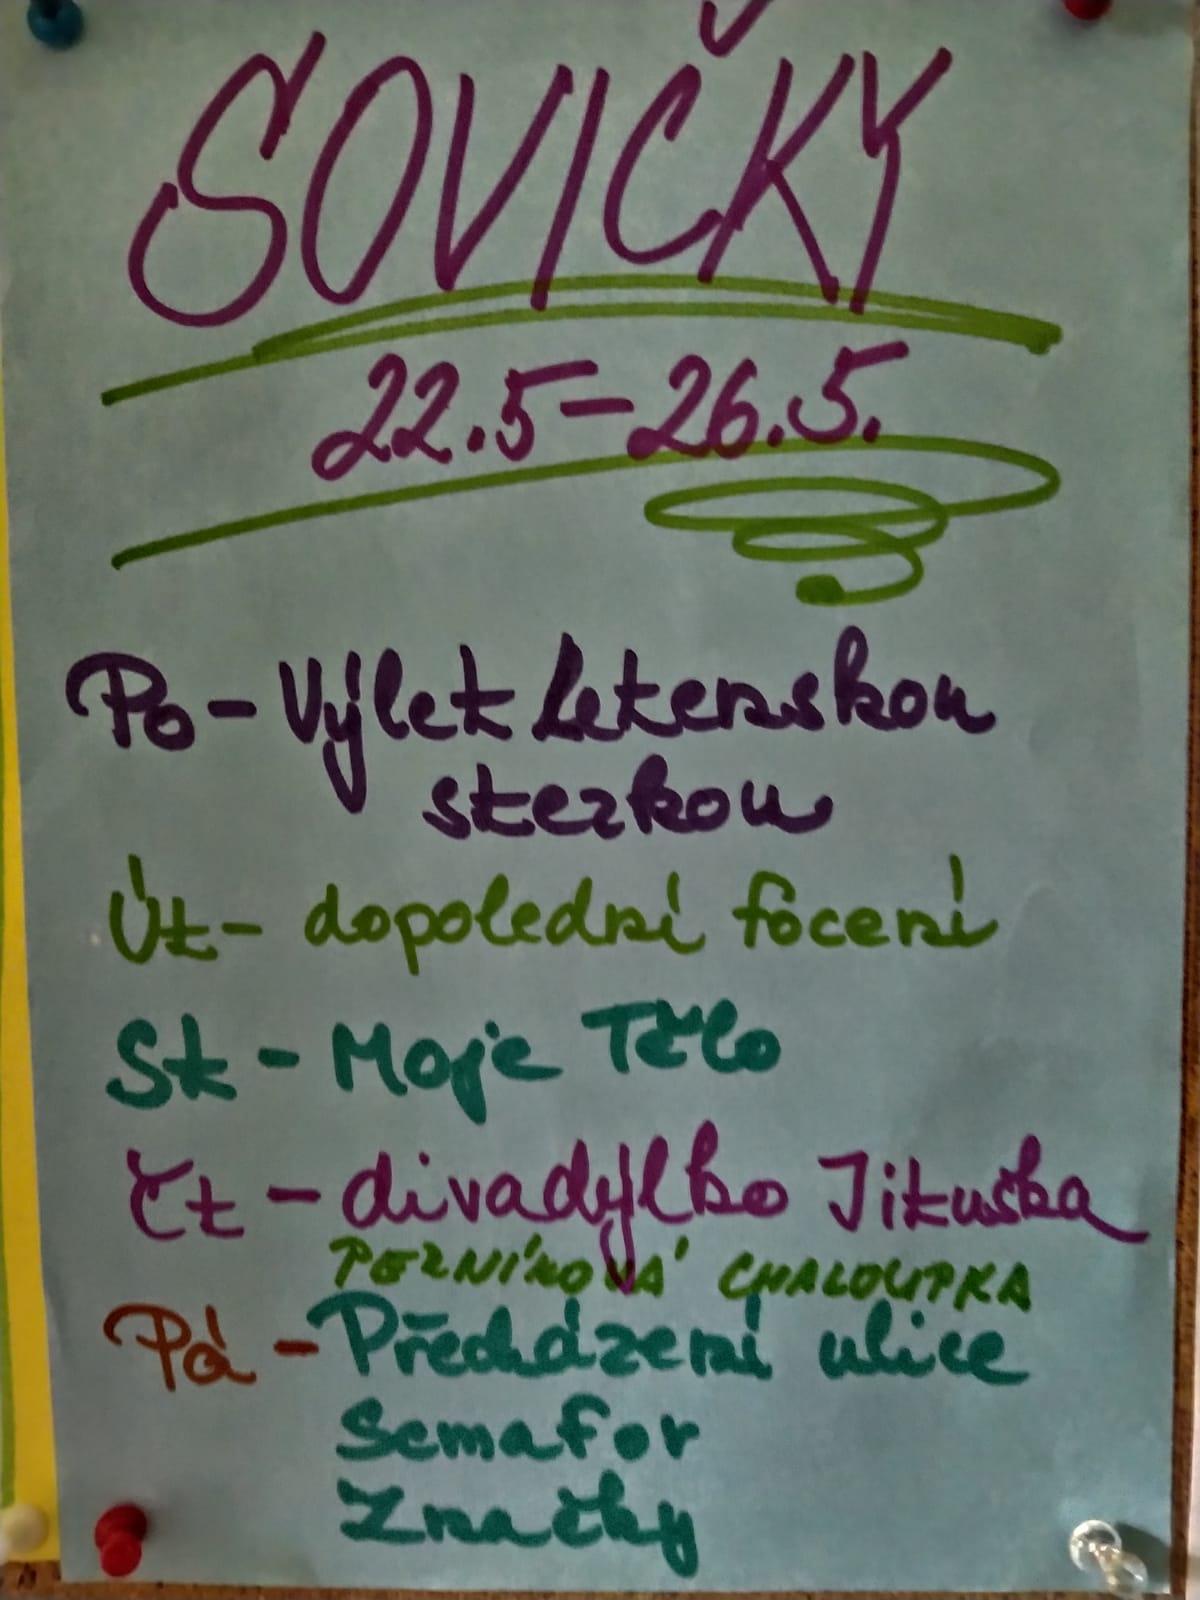 SOVIČKY
22.5-26.5.
Po - Výlet Letenskou
stezkou
Út - dopolední focení
St - Moje Tělo
Čt - divadýlko Jituška
PERNÍKOVÁ CHALOUPKA
Pá - Přecházení ulice
Semafor
Značky